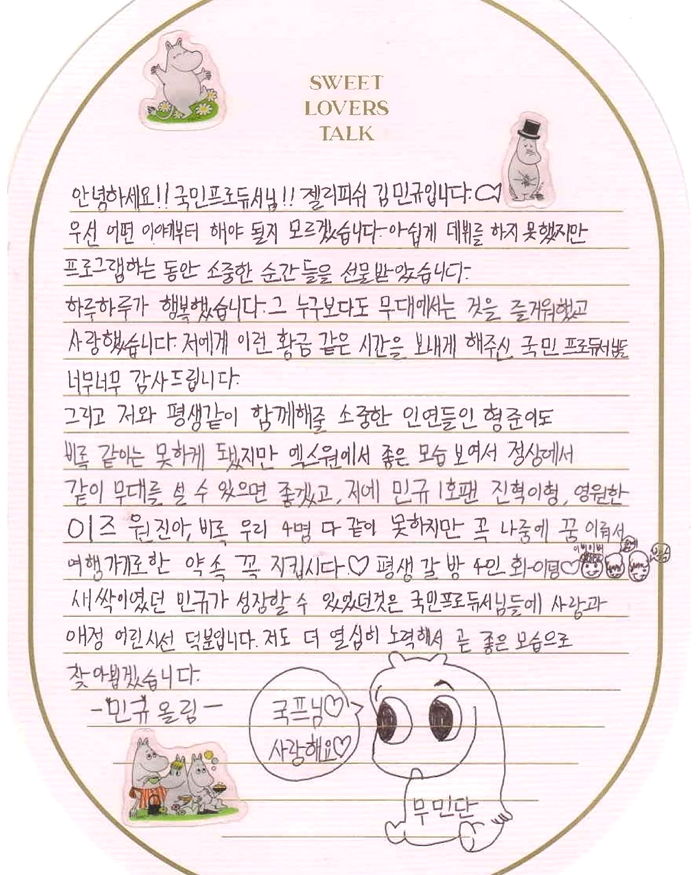 SWEET
LOVERS
TALK
안녕하세요!! 국민프로듀서님!! 젤리피쉬 김민규입니다.♡
우선 어떤 이야기부터 해야 될지 모르겠습니다. 아쉽게 데뷔를 하지 못했지만
프로그램하는 동안 소중한 순간들을 선물받았습니다.
하루하루가 행복했습니다. 그 누구보다도 무대에서는 것을 즐거워했고
사랑했습니다. 저에게 이런 황금 같은 시간을 보내게 해주신 국민 프로듀서님들
너무너무 감사드립니다.
그리고 저와 평생같이 함께해줄 소중한 인연들인 형준이도
비록 같이는 못하게 됐지만 엑스원에서 좋은 모습 보여서 정상에서
같이 무대를 설 수 있으면 좋겠고, 저에 민규 1호팬 진혁이형, 영원한
이즈 원진아, 비록 우리 4명 다 같이 못하지만 꼭 나중에 꿈 이뤄서
여행가기로한 약속 꼭 지킵시다.♡ 평생 갈 방 4인 회-이팅♡
새싹이였던 민규가 성장할 수 있었던것은 국민프로듀서님들에 사랑과
애정 어린시선 덕분입니다. 저도 더 열심히 노력해서 곧 좋은 모습으로
찾아뵙겠습니다.
-민규 올림-
국프님♡
사랑해요♡
무민단